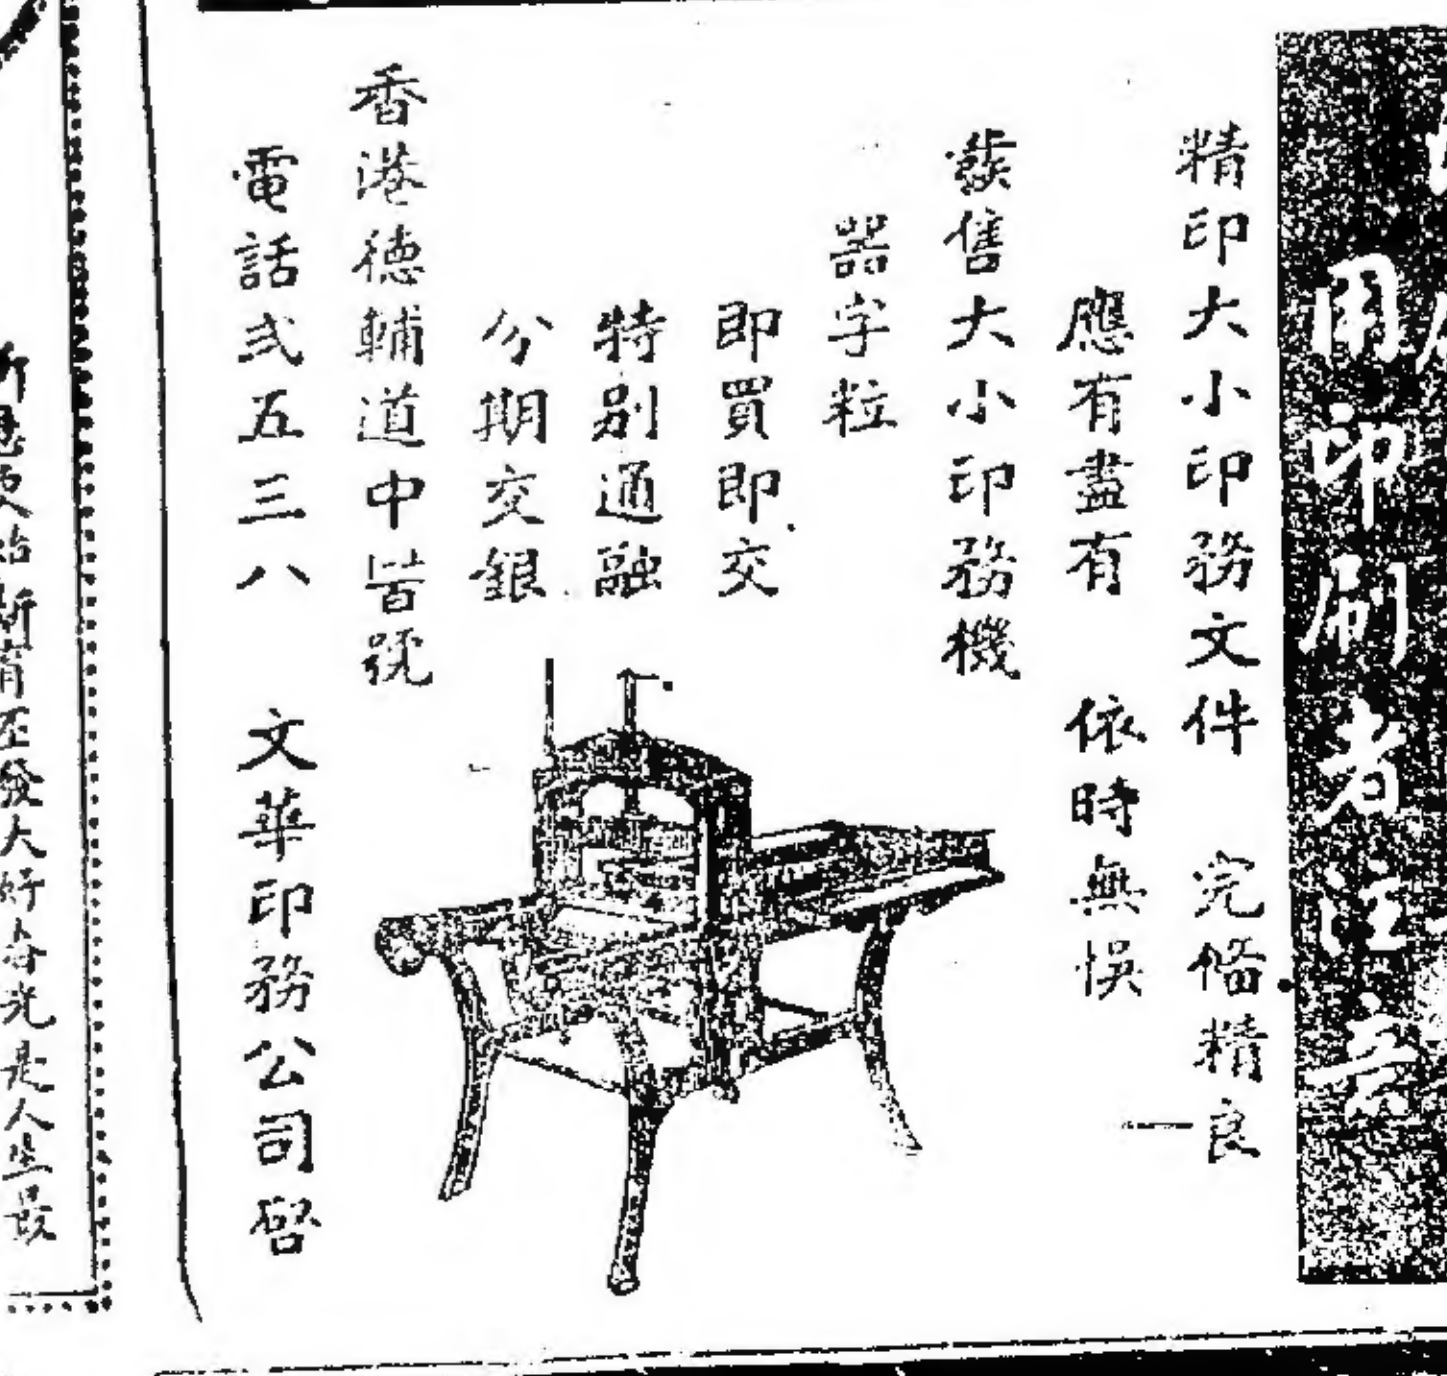 用印刷者注意
精印大小印務文件 完備精良
應有盡有 依時無悞
發售大小印務機
器字粒
即買即交
特別通融
分期交銀
香港德輔道中 號
電話弍五三八 文華印務公司啓
發大好春光是人生最